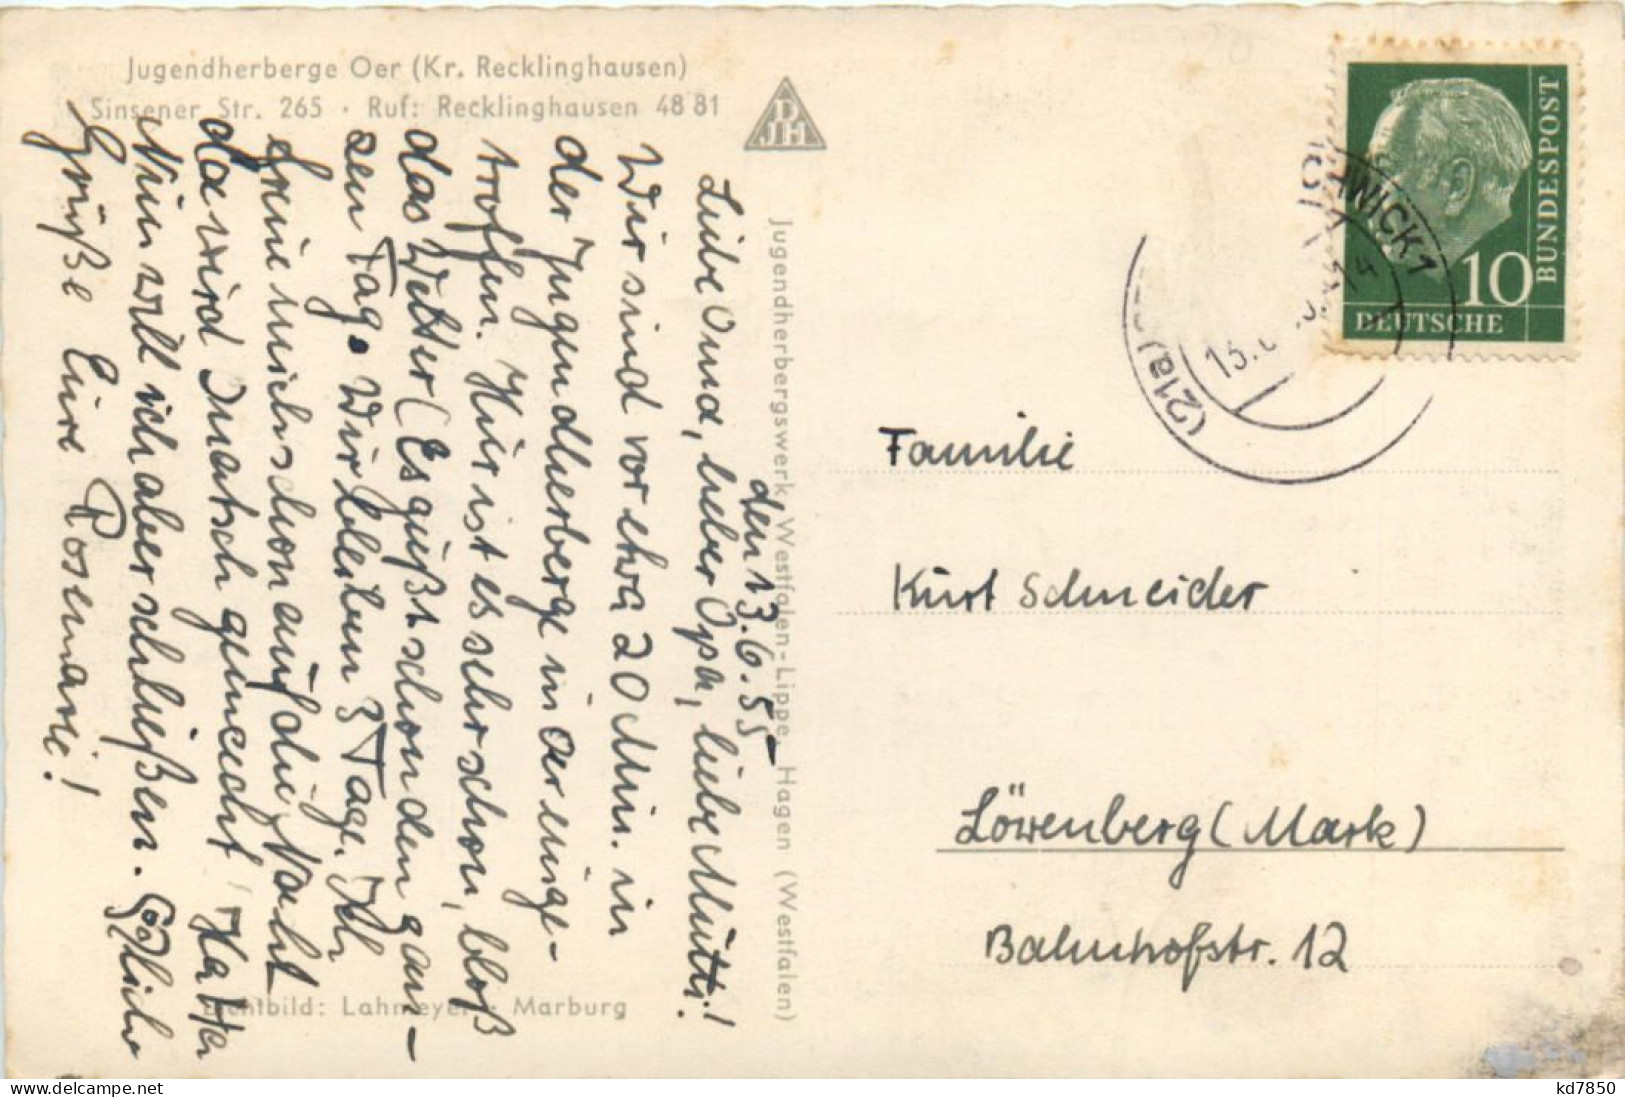 Jugendherberge Oer (Kr. Recklinghausen)
Sinsener Str. 265 · Ruf: Recklinghausen 48 81
DJH
Jugendherbergswerk Westfalen-Lippe, Hagen (Westfalen)
Lichtbild: Lahmeyer, Marburg
den 13.6.55
Liebe Oma, lieber Opa, liebe Mutti!
Wir sind vor etwa 20 Min. in
der Jugendherberge in Oer einge-
troffen. Hier ist es sehr schön, bloß
das Wetter (Es gießt schon den gan-
zen Tag. Wir bleiben 3 Tage. Ich
freue mich schon auf die Nacht
da wird Quatsch gemacht!
Nun will ich aber schließen. Herzliche
Grüße Eure Rosemarie!
BUNDESPOST
10
DEUTSCHE
WICK 1
(21a)
Familie
Kurt Schneider
Löwenberg (Mark)
Bahnhofstr. 12
kd7850